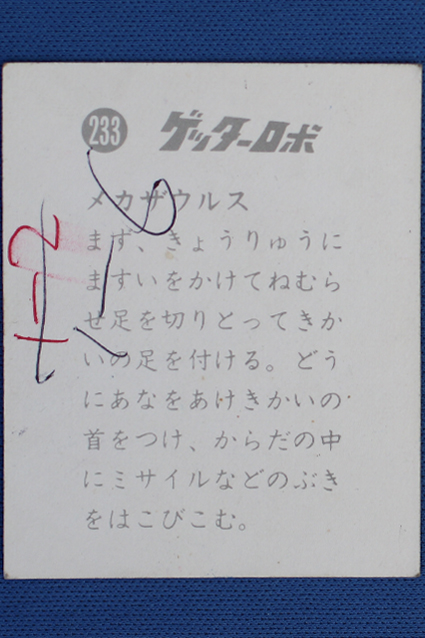 233 ゲッターロボ
メカザウルス
まず、きょうりゅうに
ますいをかけてねむら
せ足を切りとってきか
いの足を付ける。どう
にあなをあけきかいの
首をつけ、からだの中
にミサイルなどのぶき
をはこびこむ。